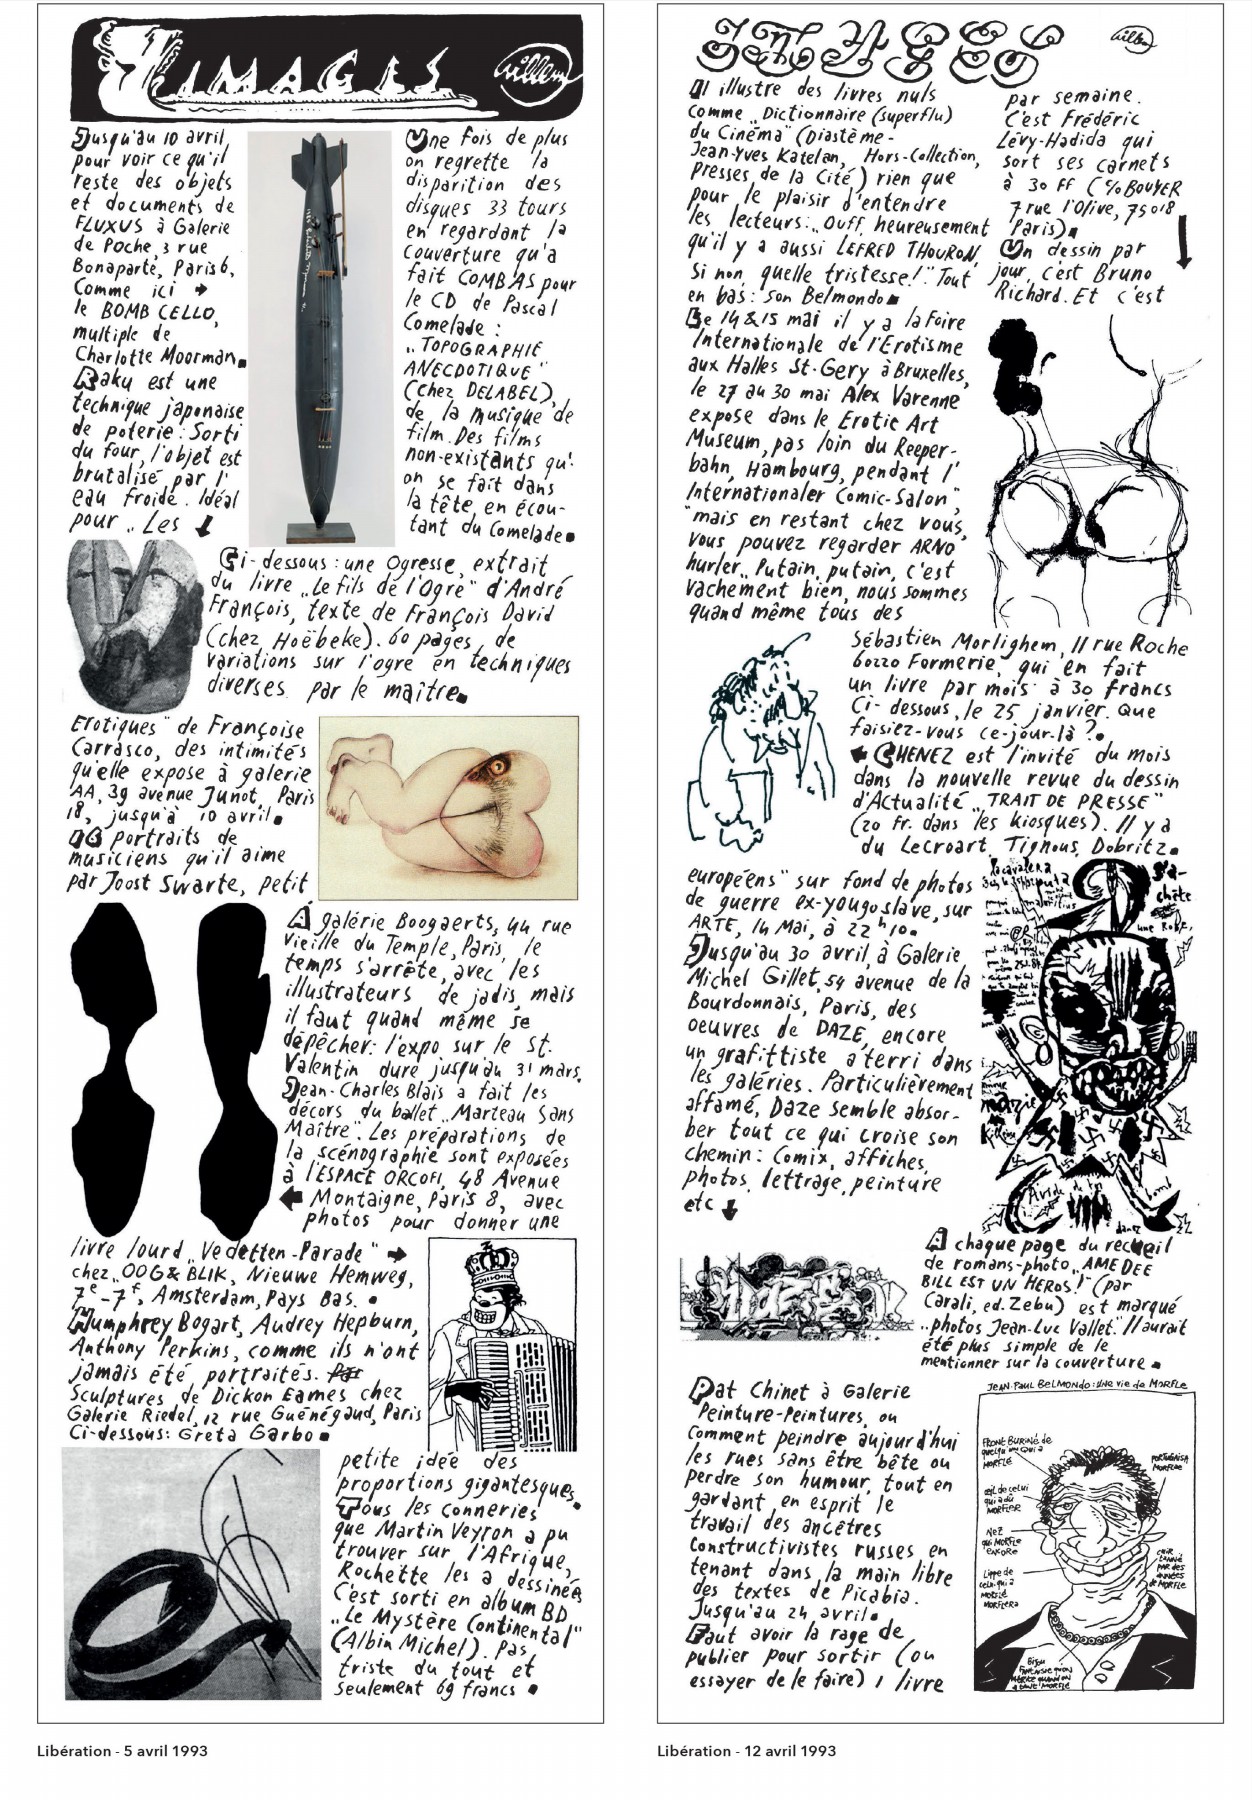 IMAGES
Willem
Jusqu'au 10 avril
pour voir ce qu'il
reste des objets
et documents de
FLUXUS à Galerie
de Poche, 3 rue
Bonaparte, Paris 6,
Comme ici ➔
le BOMB CELLO,
multiple de
Charlotte Moorman.
Raku est une
technique japonaise
de poterie: Sorti
du four, l'objet est
brutalisé par l'
eau froide. Idéal
pour „Les ↓
Une fois de plus
on regrette la
disparition des
disques 33 tours
en regardant la
couverture qu'a
fait COMBAS pour
le CD de Pascal
Comelade:
„TOPOGRAPHIE
ANECDOTIQUE"
(chez DELABEL),
de la musique de
film. Des films
non-existants qu'
on se fait dans
la tête, en écou-
tant du Comelade.
Ci-dessous: une Ogresse, extrait
du livre „Le fils de l'Ogre" d'André
François, texte de François David
(chez Hoëbeke). 60 pages, de
variations sur l'ogre en techniques
diverses par le maître.
Erotiques" de Françoise
Carrasco, des intimités
qu'elle expose à galerie
AA, 39 avenue Junot, Paris
18, jusqu'à 10 avril.
16 portraits de
musiciens qu'il aime
par Joost Swarte, petit
A galérie Boogaerts, 44 rue
Vieille du Temple, Paris, le
temps s'arrête, avec les
illustrateurs de jadis, mais
il faut quand même se
dépêcher: l'expo sur le St.
Valentin dure jusqu'au 31 mars.
Jean-Charles Blais a fait les
décors du ballet „Marteau Sans
Maître". Les préparations de
la scénographie sont exposées
à l'ESPACE ORCOFI, 48 Avenue
← Montaigne, Paris 8, avec
photos pour donner une
livre lourd „Vedetten-Parade" ➔
chez „OOG & BLIK, Nieuwe Hemweg,
7e-7f, Amsterdam, Pays Bas.
Humphrey Bogart, Audrey Hepburn,
Anthony Perkins, comme ils n'ont
jamais été portraités. Par
Sculptures de Dickon Eames chez
Galerie Riedel, 12 rue Guénégaud, Paris
Ci-dessous: Greta Garbo
petite idée des
proportions gigantesques.
Tous les conneries
que Martin Veyron a pu
trouver sur l'Afrique,
Rochette les a dessinées
C'est sorti en album BD
„Le Mystère Continental"
(Albin Michel). Pas
triste du tout et
seulement 69 francs
Libération - 5 avril 1993
IMAGES
Willem
Il illustre des livres nuls
comme „Dictionnaire (superflu)
du Cinéma" (Diastème-
Jean-Yves Katelan, Hors-Collection,
Presses de la Cité) rien que
pour le plaisir d'entendre
les lecteurs: „Ouff, heureusement
qu'il y a aussi LEFRED THOURON,
Si non, quelle tristesse!" Tout
en bas: son Belmondo
Le 14 & 15 mai il y a la Foire
Internationale de l'Erotisme
aux Halles St-Gery à Bruxelles,
le 27 au 30 mai Alex Varenne
expose dans le Erotic Art
Museum, pas loin du Reeper-
bahn, Hambourg, pendant l'
Internationaler Comic-Salon",
mais en restant chez vous,
vous pouvez regarder ARNO
hurler „Putain, putain, c'est
vachement bien, nous sommes
quand même tous des
par semaine.
C'est Frédéric
Lévy-Hadida qui
sort ses carnets
à 30 FF (C/o BOUYER
7 rue l'Olive, 75018
Paris)
Un dessin par
jour, c'est Bruno
Richard. Et c'est
Sébastien Morlighem, 11 rue Roche
60220 Formerie, qui en fait
un livre par mois à 30 francs
Ci-dessous, le 25 janvier. Que
faisiez-vous ce-jour-là?
← CHENEZ est l'invité du mois
dans la nouvelle revue du dessin
d'Actualité „TRAIT DE PRESSE"
(20 Fr. dans les kiosques). Il y a
du Lecroart, Tignous, Dobritz.
européens" sur fond de photos
de guerre ex-yougoslave, sur
ARTE, 14 Mai, à 22h10.
Jusqu'au 30 avril, à Galerie
Michel Gillet, 54 avenue de la
Bourdonnais, Paris, des
oeuvres de DAZE, encore
un grafittiste a terri dans
les galéries. Particulièrement
affamé, Daze semble absor-
ber tout ce qui croise son
chemin: Comix, affiches,
photos, lettrage, peinture
etc ↓
chête
une ROBE,
A chaque page du recueil
de romans-photo „AMEDEE
BILL EST UN HEROS!" (par
Carali, ed. Zebu) est marqué
„photos Jean-Luc Vallet." Il aurait
été plus simple de le
mentionner sur la couverture
Pat Chinet à Galerie
Peinture-Peintures, ou
comment peindre aujourd'hui
les rues sans être bête ou
perdre son humour, tout en
gardant en esprit le
travail des ancêtres
constructivistes russes en
tenant dans la main libre
des textes de Picabia.
Jusqu'au 24 avril.
Faut avoir la rage de
publier pour sortir (ou
essayer de le faire) 1 livre
JEAN-PAUL BELMONDO: UNE VIE DE MORFLE
FRONT BURINÉ de
quelqu'un qui a
MORFLÉ
PORTUGAISE
MORFLÉE
œil de celui
qui a dû
MORFLER
NEZ
qui MORFLE
ENCORE
Lippe de
celui qui a
MORFLÉ
MORFLERA
CUIR
TANNÉ
PAR DES
ANNÉES
de MORFLE
Bijou
FANTAISIE qu'on
MÉRITE quand on
a tant MORFLÉ
Libération - 12 avril 1993